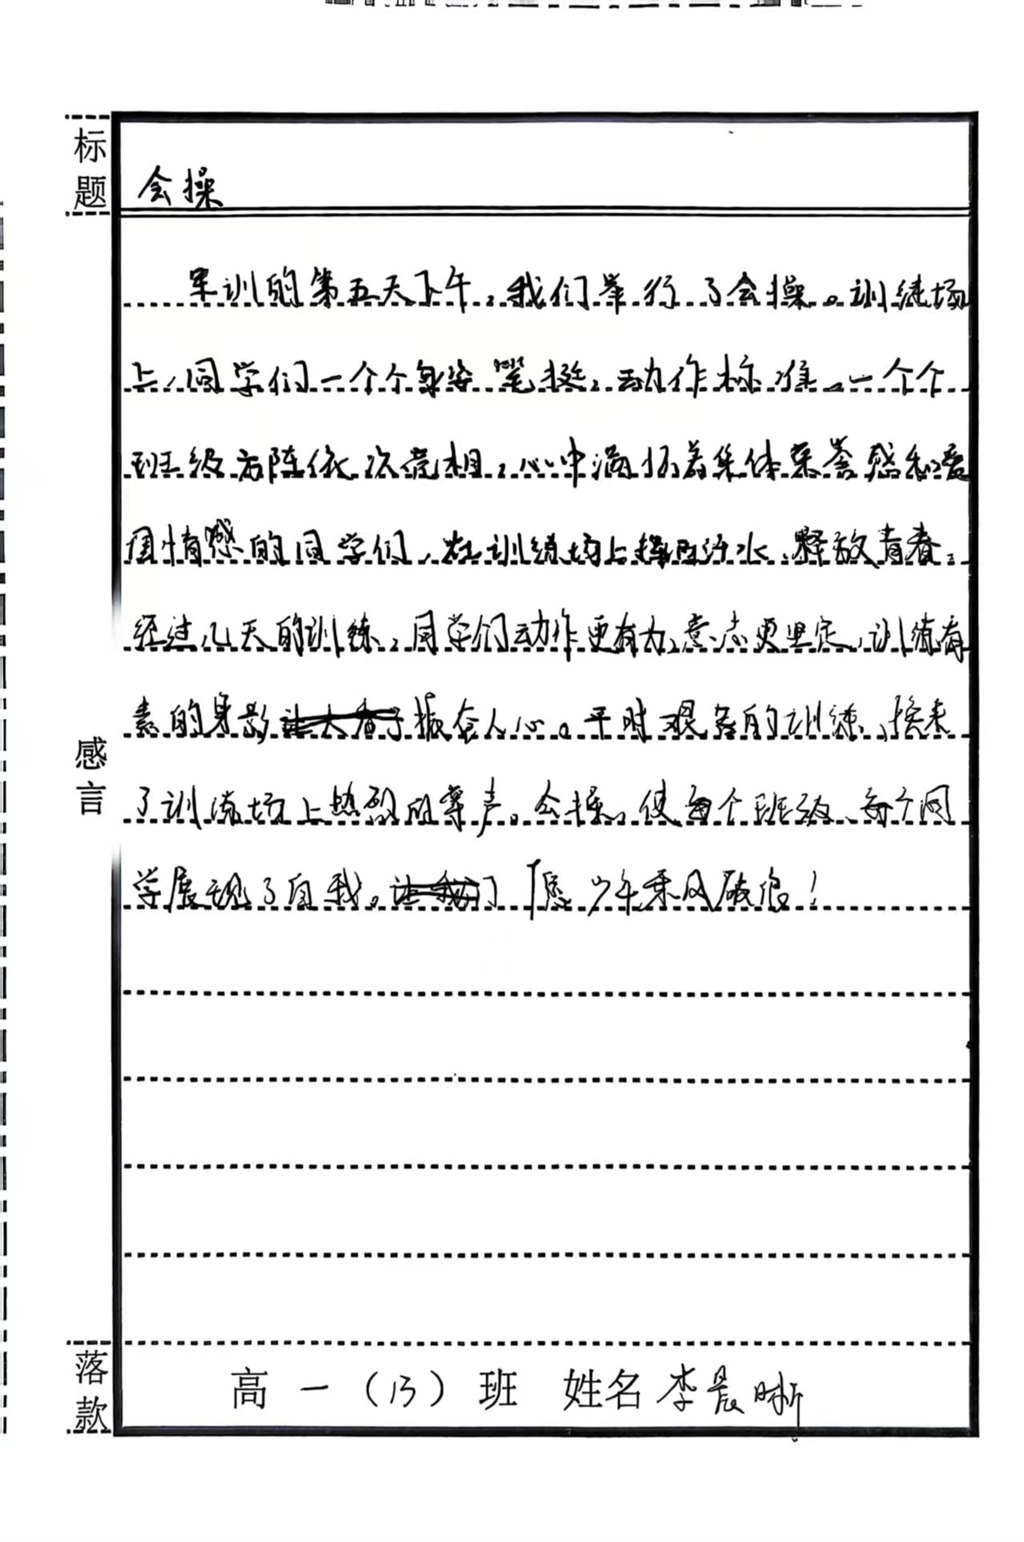 标题
会操
军训的第五天下午，我们举行了会操。训练场
上，同学们一个个身姿笔挺，动作标准。一个个
班级方阵依次亮相，心中满怀着集体荣誉感和爱
国情感的同学们，在训练场上挥洒汗水，释放青春。
经过几天的训练，同学们动作更有力，意志更坚定，训练有
素的身影振奋人心。平时艰苦的训练，换来
了训练场上热烈的掌声。会操，使每个班级、每个同
学展现了自我。「愿少年乘风破浪！
感言
落款
高一（13）班 姓名 李晨晰